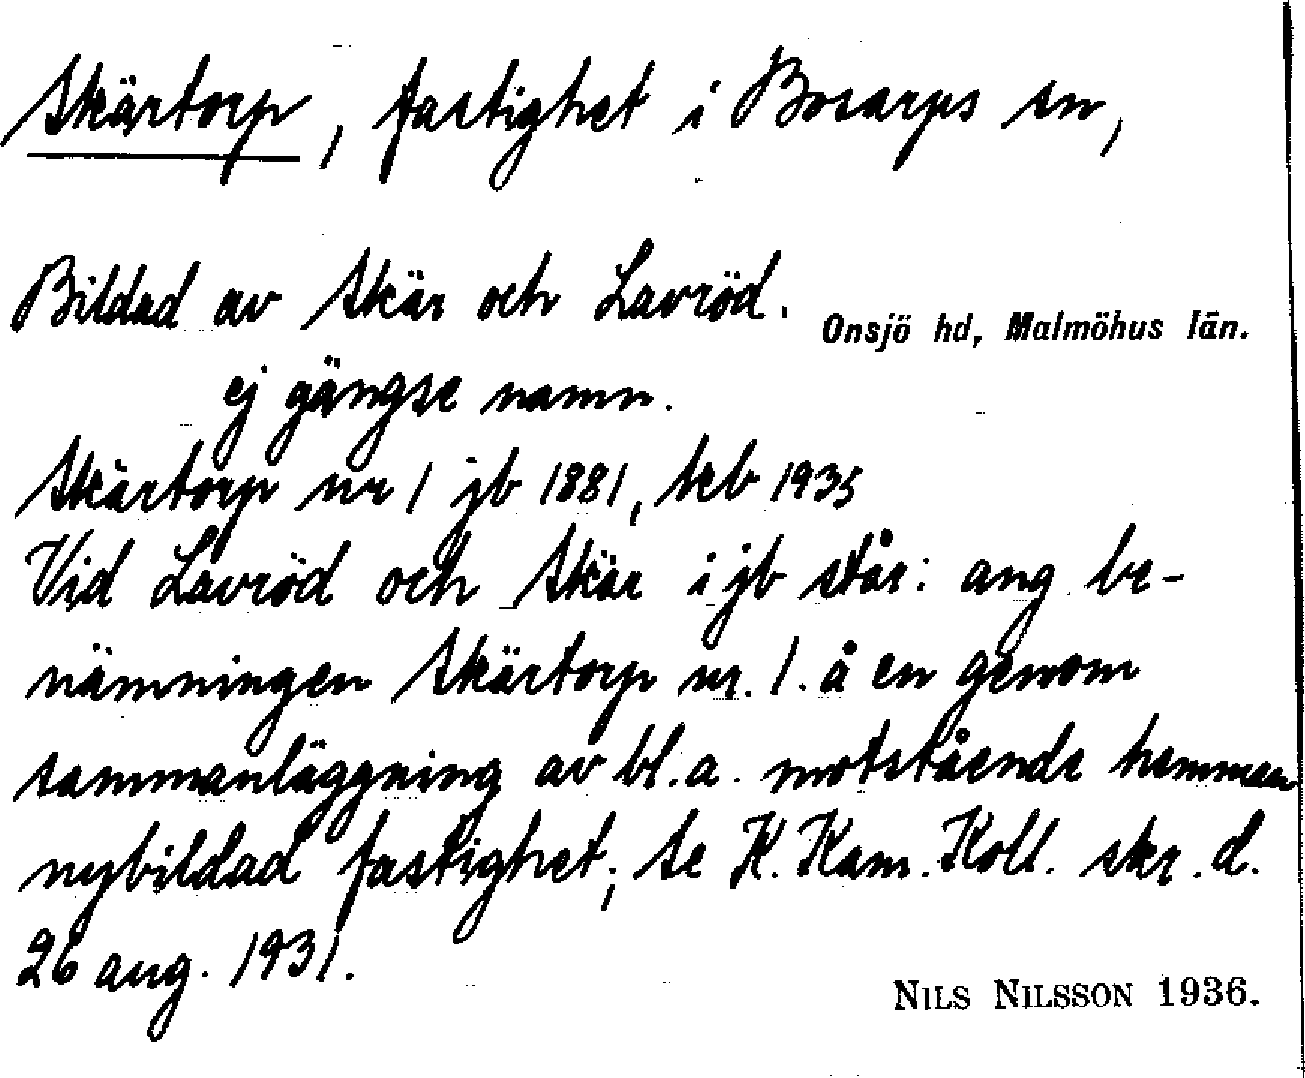 Skärtorp, fastighet i Bosarps sn,
Bildad av Skär och Lavröd.
Onsjö hd, Malmöhus län.
ej gängse namn.
Skärtorp nr 1 jb 1881, skb 1935
Vid Lavröd och Skär i jb står: ang be-
nämningen Skärtorp nr. 1. å en genom
sammanläggning av bl.a. motstående hemman
nybildad fastighet; se K. Kam. Koll. skr. d.
26 aug. 1931.
NILS NILSSON 1936.